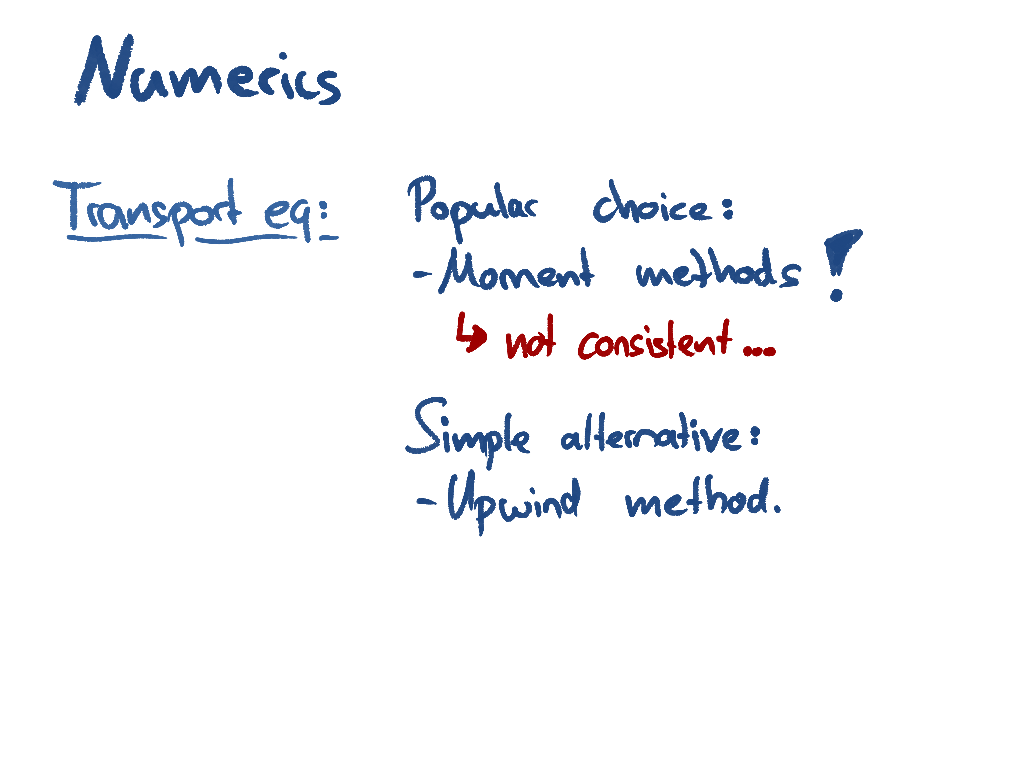 Numerics
Transport eq:
Popular choice:
- Moment methods !
↳ not consistent...
Simple alternative:
- Upwind method.